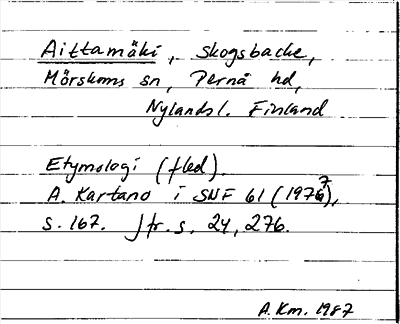 Aittamäki, skogsbacke,
Mörskoms sn, Pernå hd,
Nylandsl. Finland
Etymologi (fled).
A. Kartano i SNF 61 (1977),
s. 167. Jfr. s, 24, 276.
A. Km. 1987